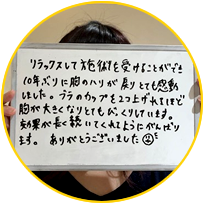 リラックスして施術を受けることができ
10年ぶりに胸のハリが戻りとても感動
しました。ブラのカップを2つ上げれてほど
胸が大きくなりとてもびっくりしています。
効果が長く続いてくれるようにがんばり
ます。ありがとうございました